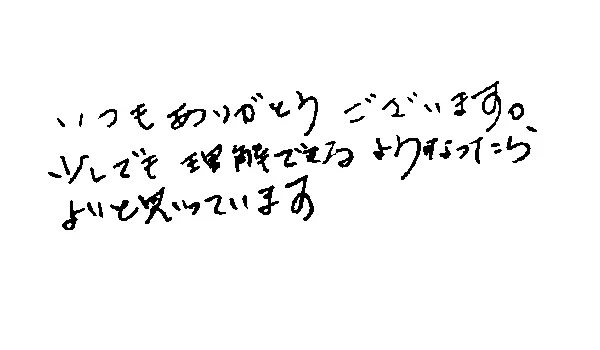 いつもありがとうございます。
少しでも理解できるようなったら
よいと思っています